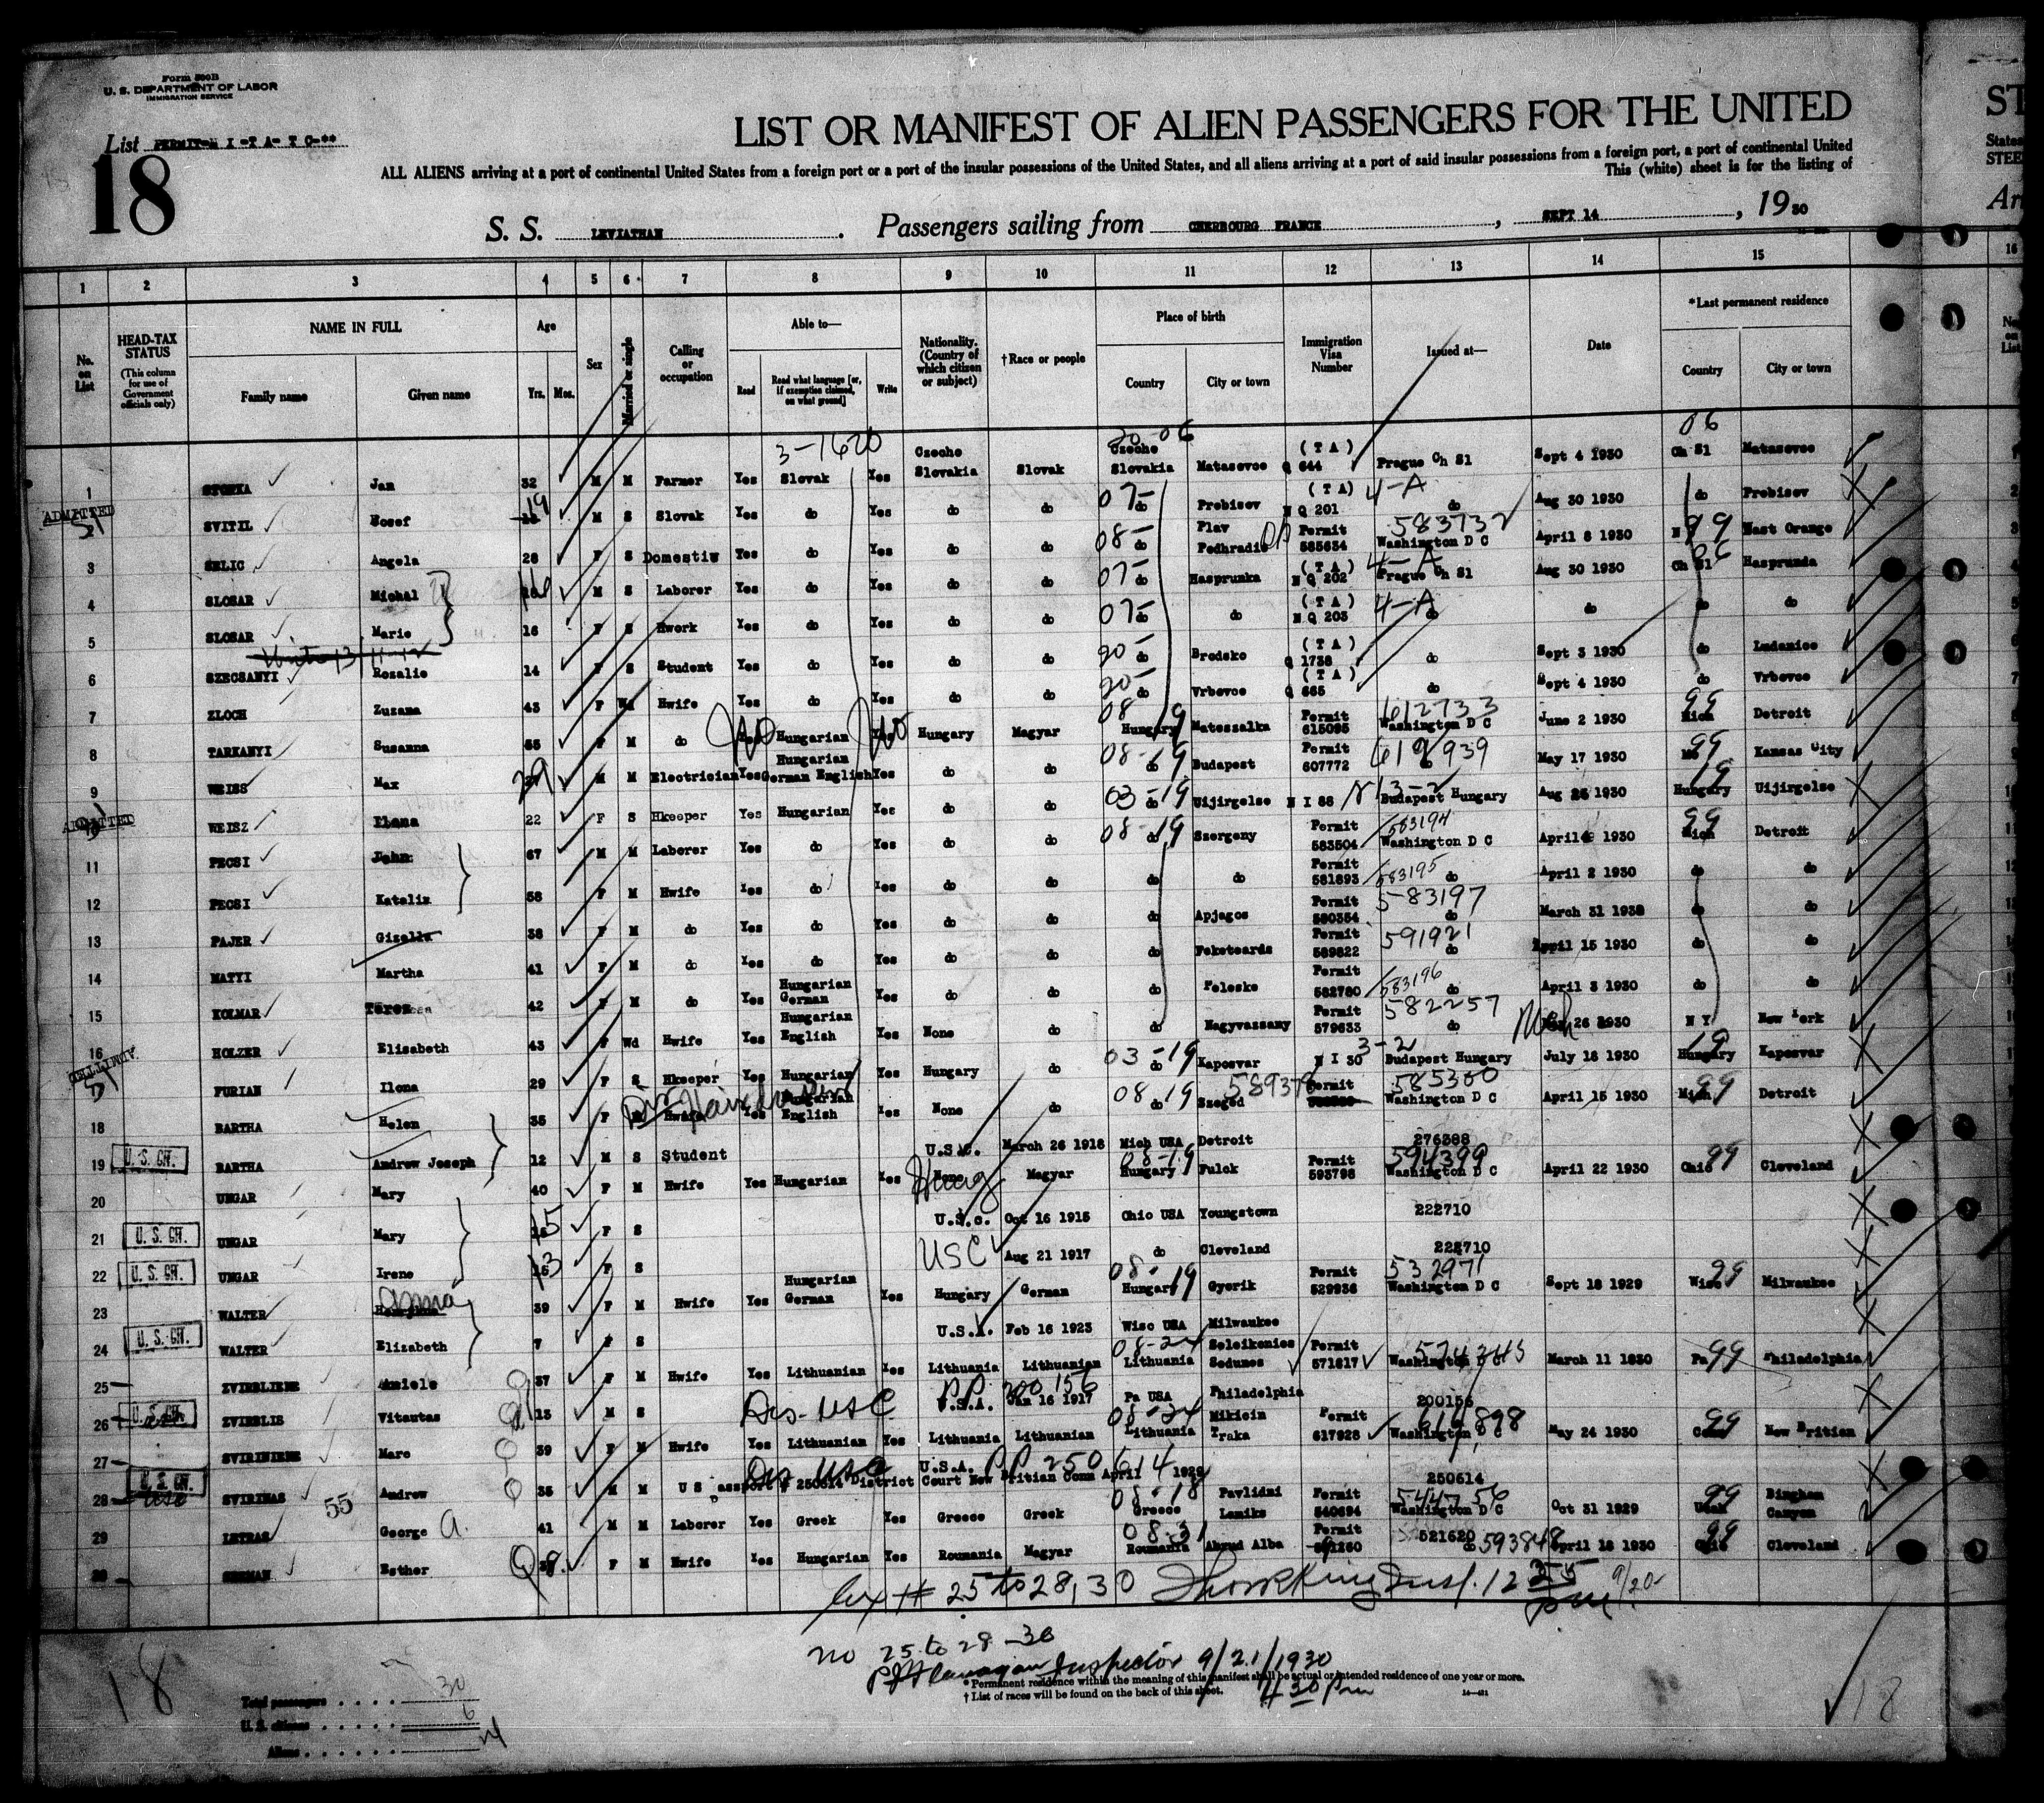 Form 500B
U. S. DEPARTMENT OF LABOR
IMMIGRATION SERVICE
List
18
LIST OR MANIFEST OF ALIEN PASSENGERS FOR THE UNITED
ALL ALIENS arriving at a port of continental United States from a foreign port or a port of the insular possessions of the United States, and all aliens arriving at a port of said insular possessions from a foreign port, a port of continental United
This (white) sheet is for the listing of
S. S. LEVIATHAN. Passengers sailing from CHERBOURG FRANCE, SEPT 14, 1930
1 2 3 4 5 6 7 8 9 10 11 12 13 14 15 16
No. on List
HEAD-TAX STATUS (This column for use of Government officials only)
NAME IN FULL Family name Given name
Age Yrs. Mos.
Sex
Married or single
Calling or occupation
Able to— Read Read what language [or, if exemption claimed, on what ground] Write
Nationality. (Country of which citizen or subject)
†Race or people
Place of birth Country City or town
Immigration Visa Number
Issued at—
Date
*Last permanent residence Country City or town
3-1620
1 Jan 32 M M Farmer Yes Slovak Yes Czecho Slovakia Slovak Czecho Slovakia Matasovce (TA) Q 644 Prague Ch Sl Sept 4 1930 Ch Sl Matasovce
ADMITTED SVITIL Josef 19 M S Slovak Yes do Yes do do 07- do Prebisov (TA) N Q 201 4-A do Aug 30 1930 do Prebisov
3 SELIC Angela 28 F S Domestic Yes do Yes do do 08- do Plav Podhradi Permit 585634 583732 Washington D C April 8 1930 99 East Orange
4 SLOSAR Michal M S Laborer Yes do Yes do do 07- do Hasprunka (TA) N Q 202 4-A Prague Ch Sl Aug 30 1930 Ch Sl Hasprunda
5 SLOSAR Marie 16 F S Hwork Yes do Yes do do 07- do do (TA) N Q 203 4-A do do do do
6 SZECSANYI Rozalie 14 F S Student Yes do Yes do do 20- do Brodske (TA) Q 1738 do Sept 3 1930 do Ludanice
7 ZLOCH Zuzana 43 F Wd Hwife Yes do Yes do do 20- do Vrbovce (TA) Q 665 do Sept 4 1930 do Vrbovce
8 TARKANYI Susanna 55 F M do No Hungarian No Hungary Magyar 08 19 Hungary Mateszalka Permit 615095 612733 Washington D C June 2 1930 99 Mich Detroit
9 WEISS Max 39 M M Electrician Yes Hungarian German English Yes do do 08-19 do Budapest Permit 607772 May 17 1930 99 Mo Kansas City
ADMITTED WEISZ Ilona 22 F S Hkeeper Yes Hungarian Yes do do 03-19 do Uijirgelse N I 86 3-2 Budapest Hungary Aug 25 1930 19 Hungary Uijirgelse
11 PECSI John 67 M M Laborer Yes do Yes do do 08-19 do Szergeny Permit 583504 583194 Washington D C April 1930 99 Mich Detroit
12 PECSI Katalin 58 F M Hwife Yes do Yes do do do do Permit 581893 583195 do April 2 1930 do do
13 PAJER Gizella 38 F M do Yes do Yes do do do Apjagos Permit 580354 583197 do March 31 1930 do do
14 MATYI Martha 41 F M do Yes do Yes do do do Feketeards Permit 589822 591921 do April 15 1930 do do
15 KOLMAR 42 F M do Yes Hungarian German Yes do do do Feleske Permit 582780 583196 do April 3 1930 do do
16 HOLZER Elisabeth 43 F Wd Hwife Yes Hungarian English Yes None do do Nagyvassany Permit 579633 582257 do 26 1930 N Y New York
ADMITTED FURIAN Ilona 29 F S Hkeeper Yes Hungarian Yes Hungary do 03-19 do Kaposvar N I 30 3-2 Budapest Hungary July 18 1930 19 Hungary Kaposvar
18 BARTHA Helen 35 F M Hwife Yes Hungarian English Yes None do 08 19 do Szeged Permit 585350 Washington D C April 15 1930 99 Mich Detroit
19 U. S. CIT. BARTHA Andrew Joseph 12 M S Student U.S.C. March 26 1918 Mich USA Detroit 276388
20 UNGAR Mary 40 F M Hwife Yes Hungarian Yes Hung Magyar 08-19 Hungary Fulok Permit 593798 594399 Washington D C April 22 1930 99 Ohio Cleveland
21 U. S. CIT. UNGAR Mary 15 F S U.S.C. Oct 16 1915 Ohio USA Youngstown 222710
22 U. S. CIT. UNGAR Irene 13 F S USC Aug 21 1917 do Cleveland 222710
23 WALTER Anna 39 F M Hwife Yes Hungarian German Yes Hungary German 08-19 Hungary Gyerik Permit 529936 532971 Washington D C Sept 18 1929 99 Wisc Milwaukee
24 U. S. CIT. WALTER Elizabeth 7 F S U.S.A. Feb 16 1923 Wisc USA Milwaukee
25 ZVIRBLIENE Amiele 37 F M Hwife Yes Lithuanian Yes Lithuania Lithuanian 08-24 Lithuania Seleikenies Sedunes Permit 571617 Washington D C March 11 1930 Pa 99 Philadelphia
26 U. S. CIT. ZVIRBLIS Vitautas 13 M S USC P.P. 200156 U.S.A. Jan 16 1917 Pa USA Philadelphia 200156
27 SVIRINIENE Mare 39 F M Hwife Yes Lithuanian Yes Lithuania Lithuanian 08-24 Lithuania Miklein Traka Permit 617928 Washington D C May 24 1930 99 Conn New Britian
28 U. S. CIT. SVIRINAS Andrew 35 M M U S passport # 250614 District Court New Britian Conn April 1929 U.S.A. PP 250614 250614
29 LETRAS 55 George A. 41 M M Laborer Yes Greek Yes Greece Greek 08-18 Greece Pavlidni Lamiks Permit 540694 544756 Washington D C Oct 31 1929 99 Utah Bingham Canyon
30 Esther F M Hwife Yes Hungarian Yes Roumania Magyar 08-31 Roumania Abrud Alba Permit 521620 do 593848 April 18 1930 99 Ohio Cleveland
# 25 to 28, 30 Insp. 12 25 pm 9/20
no 25 to 28 - 30
Inspector 9/21/1930
* Permanent residence within the meaning of this manifest shall be actual or intended residence of one year or more.
† List of races will be found on the back of this sheet.
4 30 Pm
18
Total passengers 30
U. S. citizens 6
Aliens
18